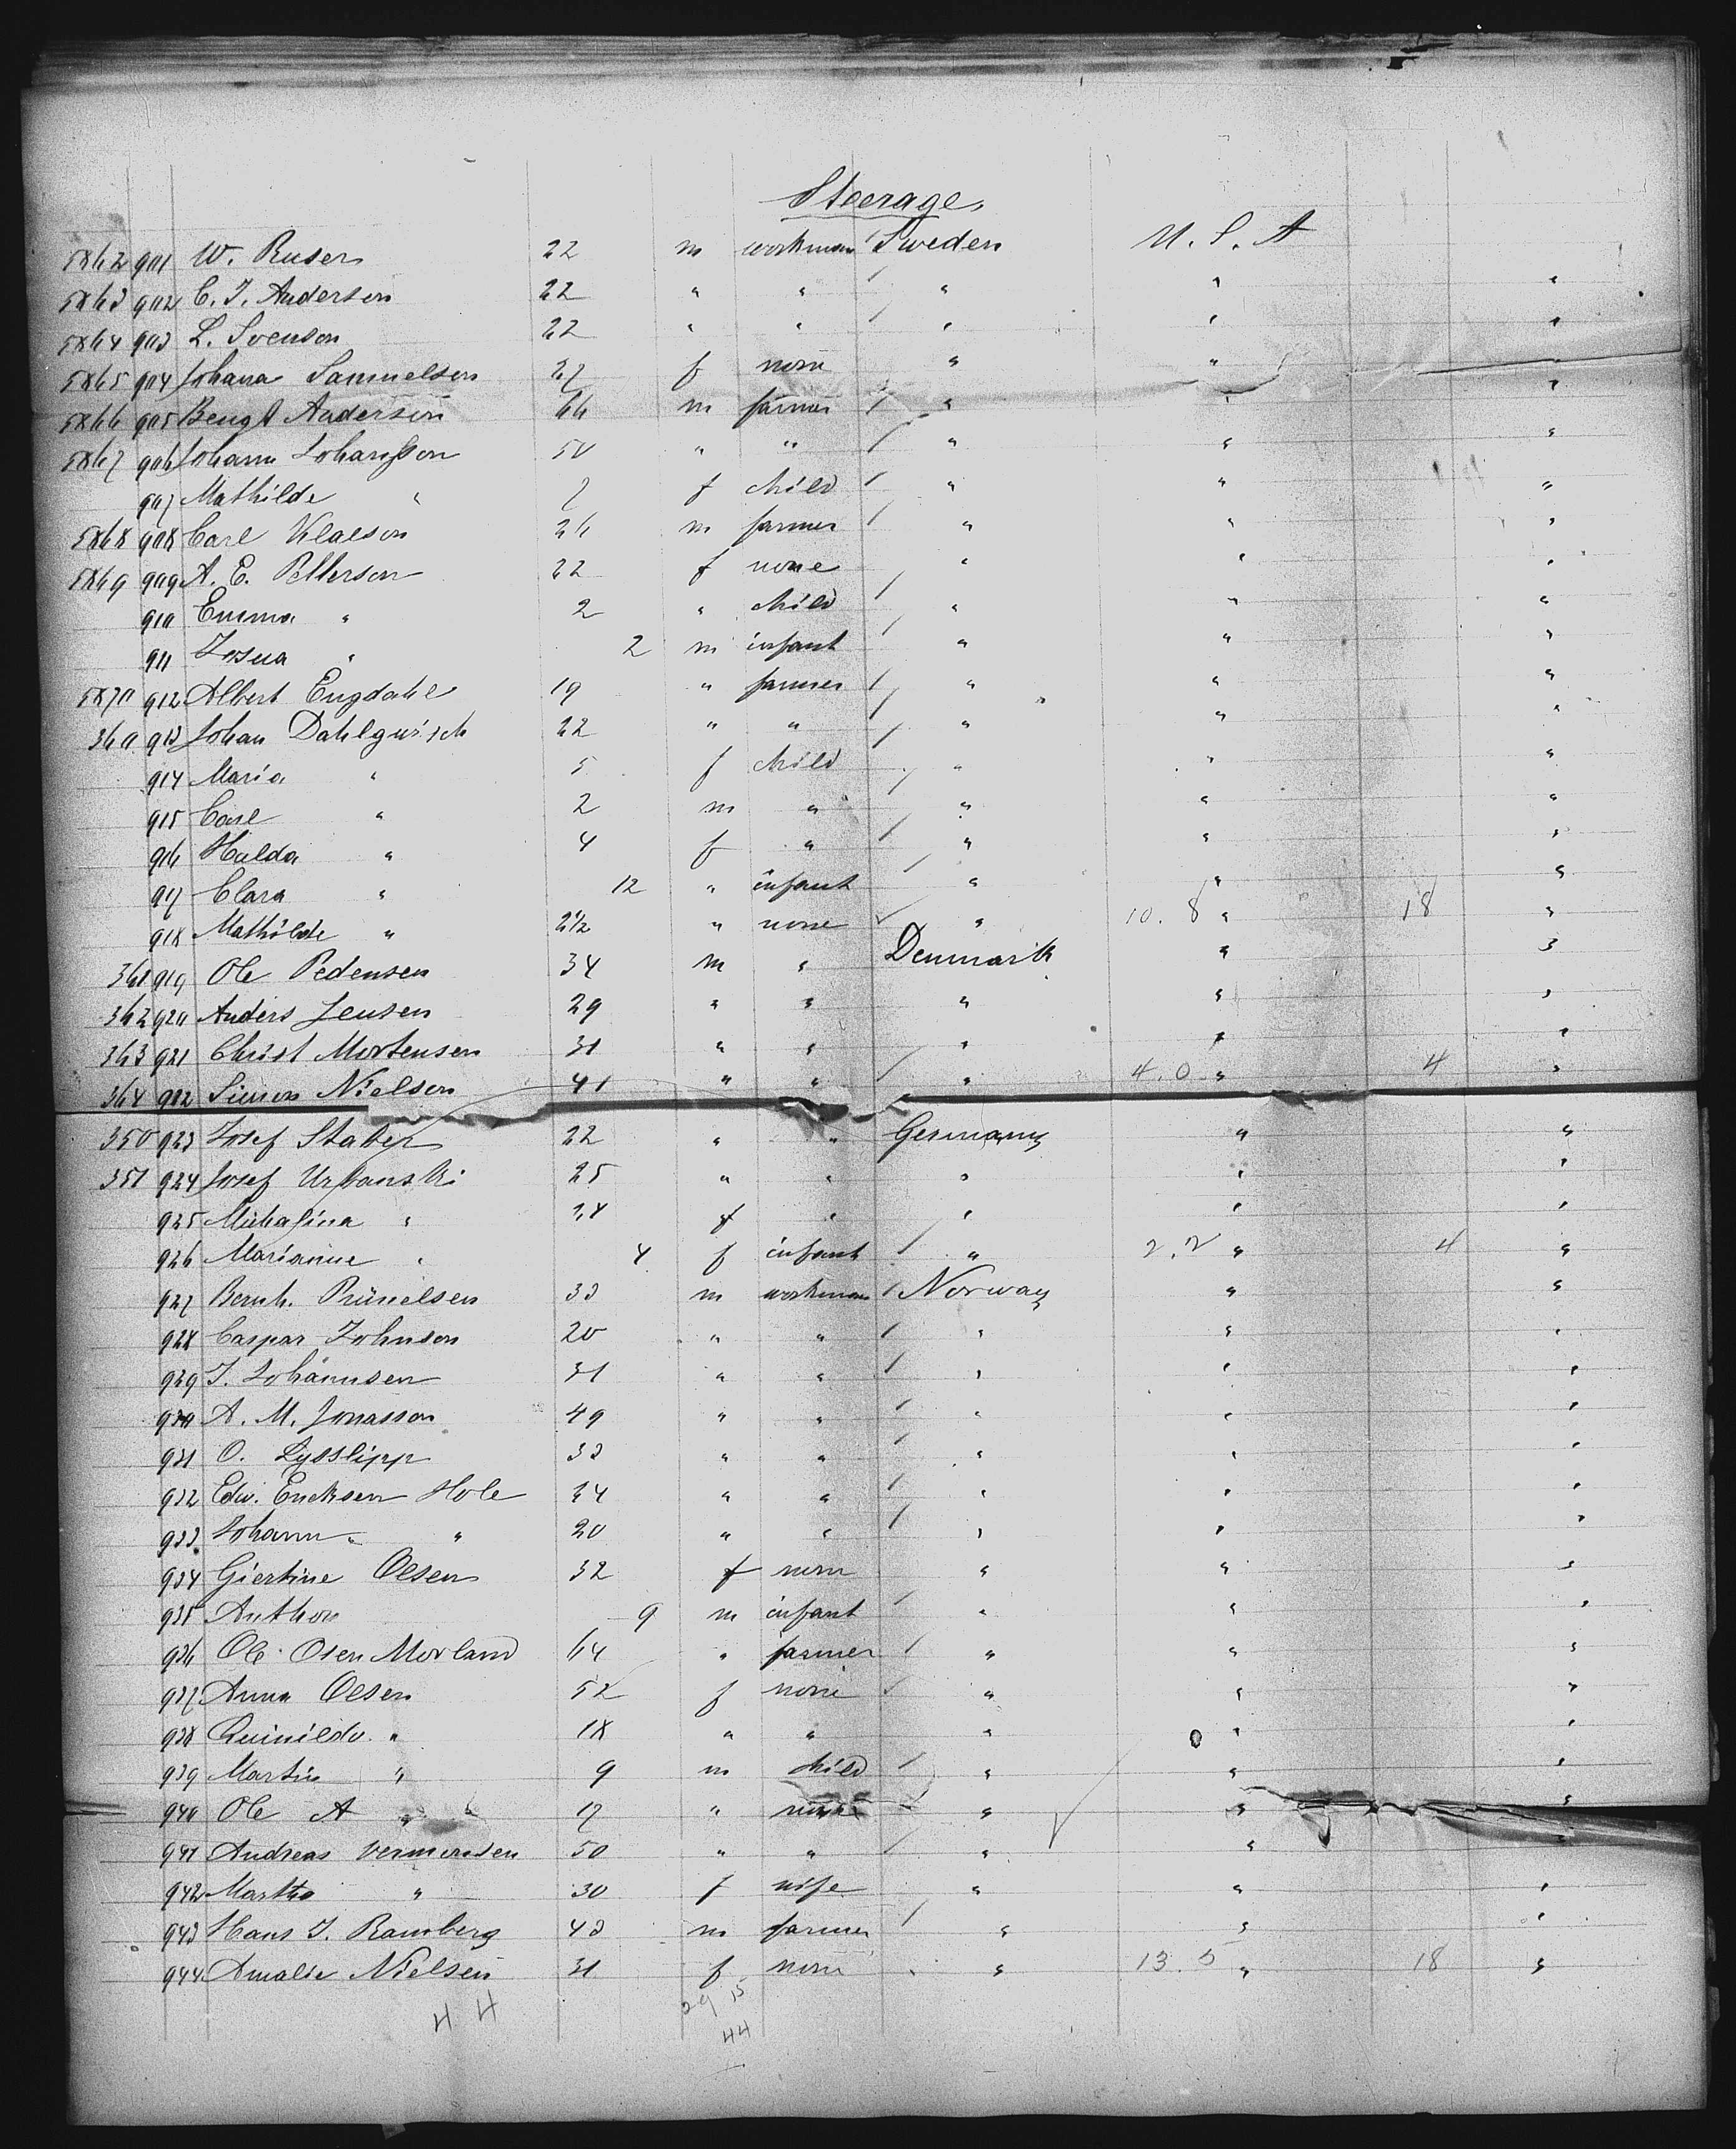 Steerage
5862 901 W. Ruser 22 m workman Sweden U. S. A
5863 902 C. J. Anderson 22 " " " " "
5864 903 L. Svenson 22 " " " " "
5865 904 Johana Samuelsen 27 f none " " "
5866 905 Bengt Anderson 66 m farmer " " "
5867 906 Johann Johansson 50 " " " " "
907 Mathilde " 7 f child " " "
5868 908 Carl Klaeson 26 m farmer " " "
5869 909 A. E. Petterson 22 f none " " "
910 Emma " 2 " child " " "
911 Josua " 2 m infant " " "
5870 912 Albert Engdahl 19 " farmer " " "
360 913 Johan 22 " " " " "
914 Maria " 5 f child " " "
915 Carl " 2 m " " " "
916 Hulda " 4 f " " " "
917 Clara " 12 " infant " " "
918 Mathilde " " none " 10. 8 " 18 "
361 919 Ole Pedensen 34 m " Denmark " "
362 920 Anders Jensen 29 " " " " "
363 921 Christ Mortensen 31 " " " " "
364 922 Simon Nielson 41 " " " 4. 0 " 4 "
350 923 Josef 22 " " Germany " "
351 924 Josef Urbanski 25 " " " " "
925 Michalina " 24 f " " " "
926 Marianne " 4 f infant " 2. 2 " 4 "
927 Bernh. 33 m workman Norway " "
928 Caspar Johnson 20 " " " " "
929 J. Johannsen 31 " " " " "
930 A. M. Jonasson 49 " " " " "
931 O. Lysslipp 33 " " " " "
932 Edw. Ericksen Hole 24 " " " " "
933 Johann " " 20 " " " " "
934 Giertine Olsen 32 f none " " "
935 Anthon 9 m infant " " "
936 Ole Osen Morland 64 " farmer " " "
937 Anna Olsen 52 f none " " "
938 " 18 " " " " "
939 Martin " 9 m child " " "
940 Ole A " 17 " none " " "
941 Andreas 50 " " " " "
942 Martha " 30 f wife " " "
943 Hans J. Ramberg 43 m farmer " " "
944 Amalie Nielsen 31 f none " 13. 5 " 18 "
44 29 15
44